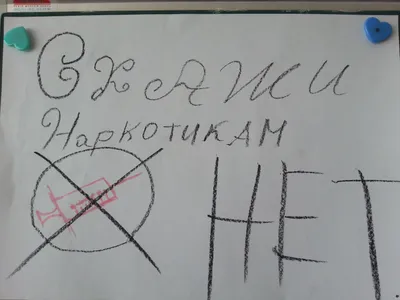 Скажи
Наркотикам
НЕТ